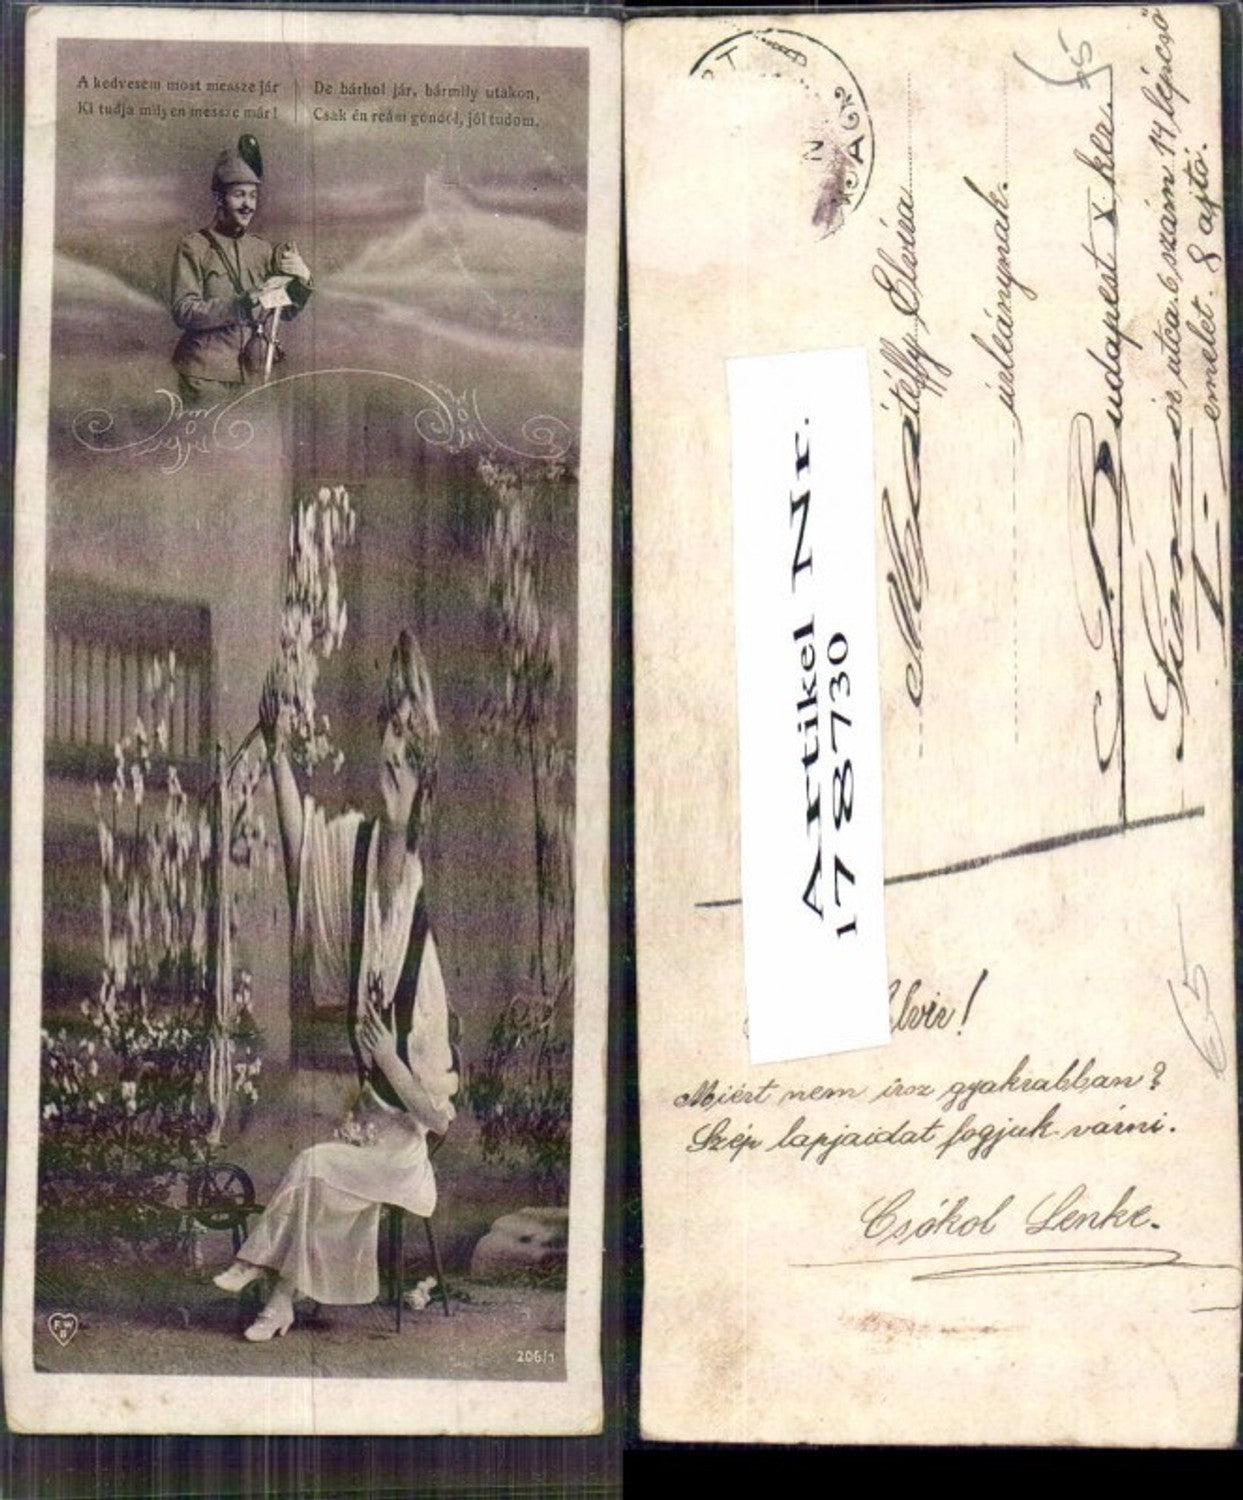 A kedvesem most messze jár
Ki tudja milyen messze már!
De bárhol jár, bármily utakon,
Csak én reám gondol, jól tudom.
F W
206/1
Artikel Nr.
178730
Elvira
úrleánynak.
Budapest X ker.
utca 6 szám 14 lépcső
I emelet. 8 ajtó.
65
Elvir!
Miért nem írsz gyakrabban?
Szép lapjaidat fogjuk várni.
Csókol Lenke.